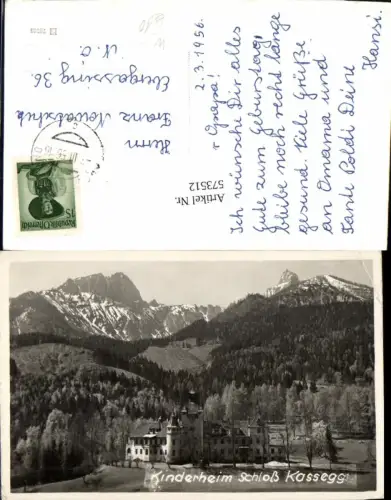 2.3.1956.
Opapa!
Ich wünsche Dir alles
Gute zum Geburtstag,
bleibe noch recht lange
gesund. Viele Grüße
an Omama und
Tante Poldi Deine
Hansi.
Herrn
Franz
36.
N. Ö.
Republik Österreich
Artikel Nr.
573512
Kinderheim Schloß Kassegg